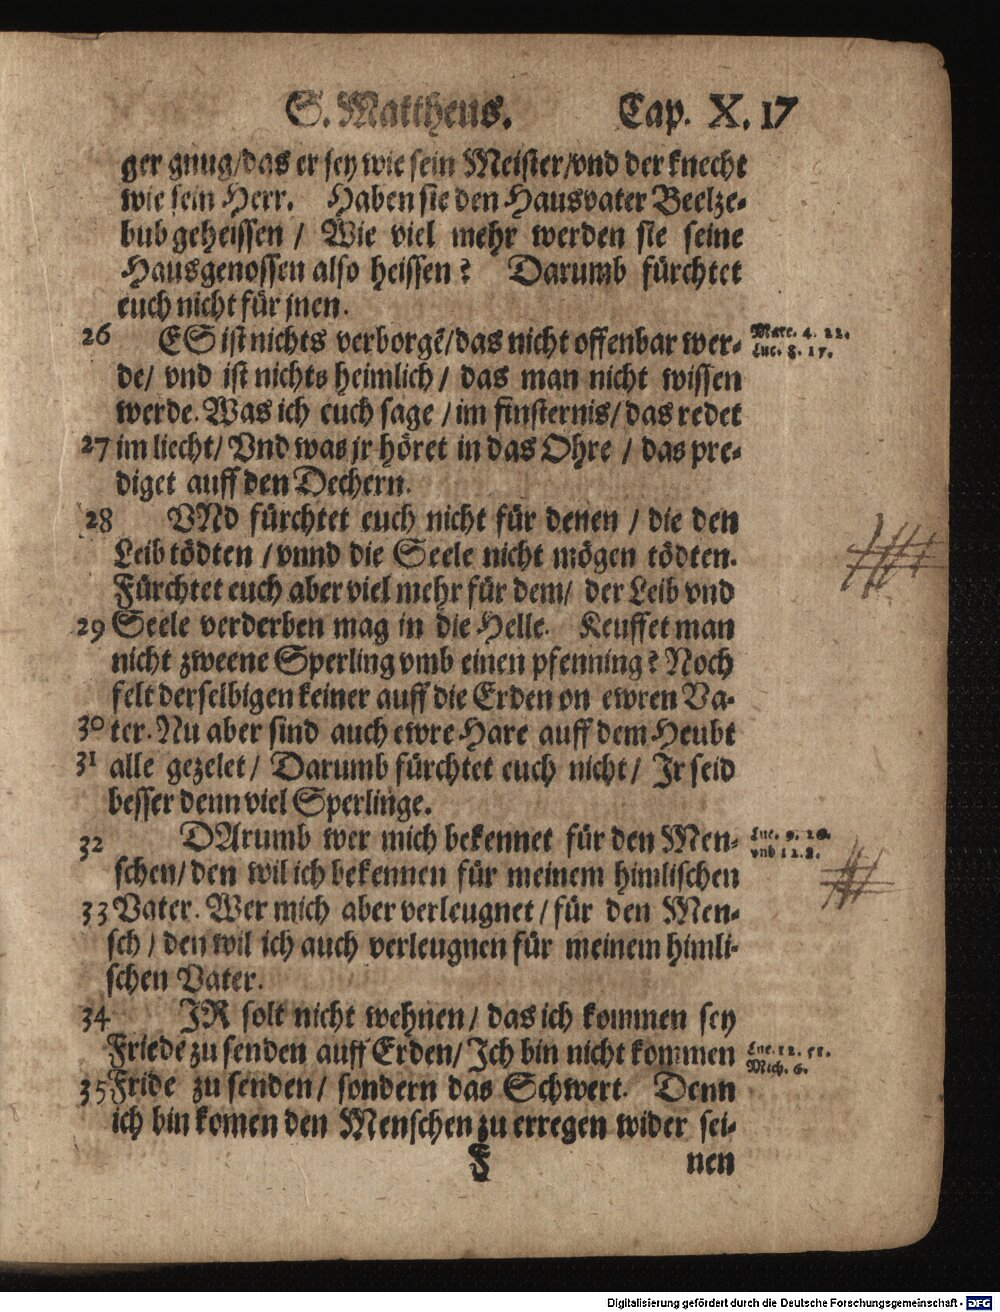 S. Mattheus. Cap. X. 17
ger gnug/das er sey wie sein Meister/vnd der knecht
wie sein Herr. Haben sie den Hausvater Beelze-
bub geheissen / Wie viel mehr werden sie seine
Hausgenossen also heissen? Darumb fürchtet
euch nicht für jnen.
26 ES ist nichts verborgē/das nicht offenbar wer-
Marc. 4. 22.
Luc. 8. 17.
de/ vnd ist nichts heimlich / das man nicht wissen
werde. Was ich euch sage / im finsternis/ das redet
27 im liecht/ Vnd was jr höret in das Ohre / das pre-
diget auff den Dechern.
28 VNd fürchtet euch nicht für denen / die den
Leib tödten / vnnd die Seele nicht mögen tödten.
Fürchtet euch aber viel mehr für dem/ der Leib vnd
29 Seele verderben mag in die Helle. Keuffet man
nicht zweene Sperling vmb einen pfenning? Noch
felt derselbigen keiner auff die Erden on ewren Va-
30 ter. Nu aber sind auch ewre Hare auff dem Heubt
31 alle gezelet/ Darumb fürchtet euch nicht/ Jr seid
besser denn viel Sperlinge.
32 DArumb wer mich bekennet für den Men-
Luc. 9. 26.
vnd 12. 8.
schen/ den wil ich bekennen für meinem himlischen
33 Vater. Wer mich aber verleugnet / für den Men-
sch / den wil ich auch verleugnen für meinem himli-
schen Vater.
34 JR solt nicht wehnen/ das ich kommen sey
Friede zu senden auff Erden/ Jch bin nicht kommen
Luc. 12. 51.
Mich. 6.
35 Fride zu senden/ sondern das Schwert. Denn
ich bin komen den Menschen zu erregen wider sei-
F nen
Digitalisierung gefördert durch die Deutsche Forschungsgemeinschaft - DFG